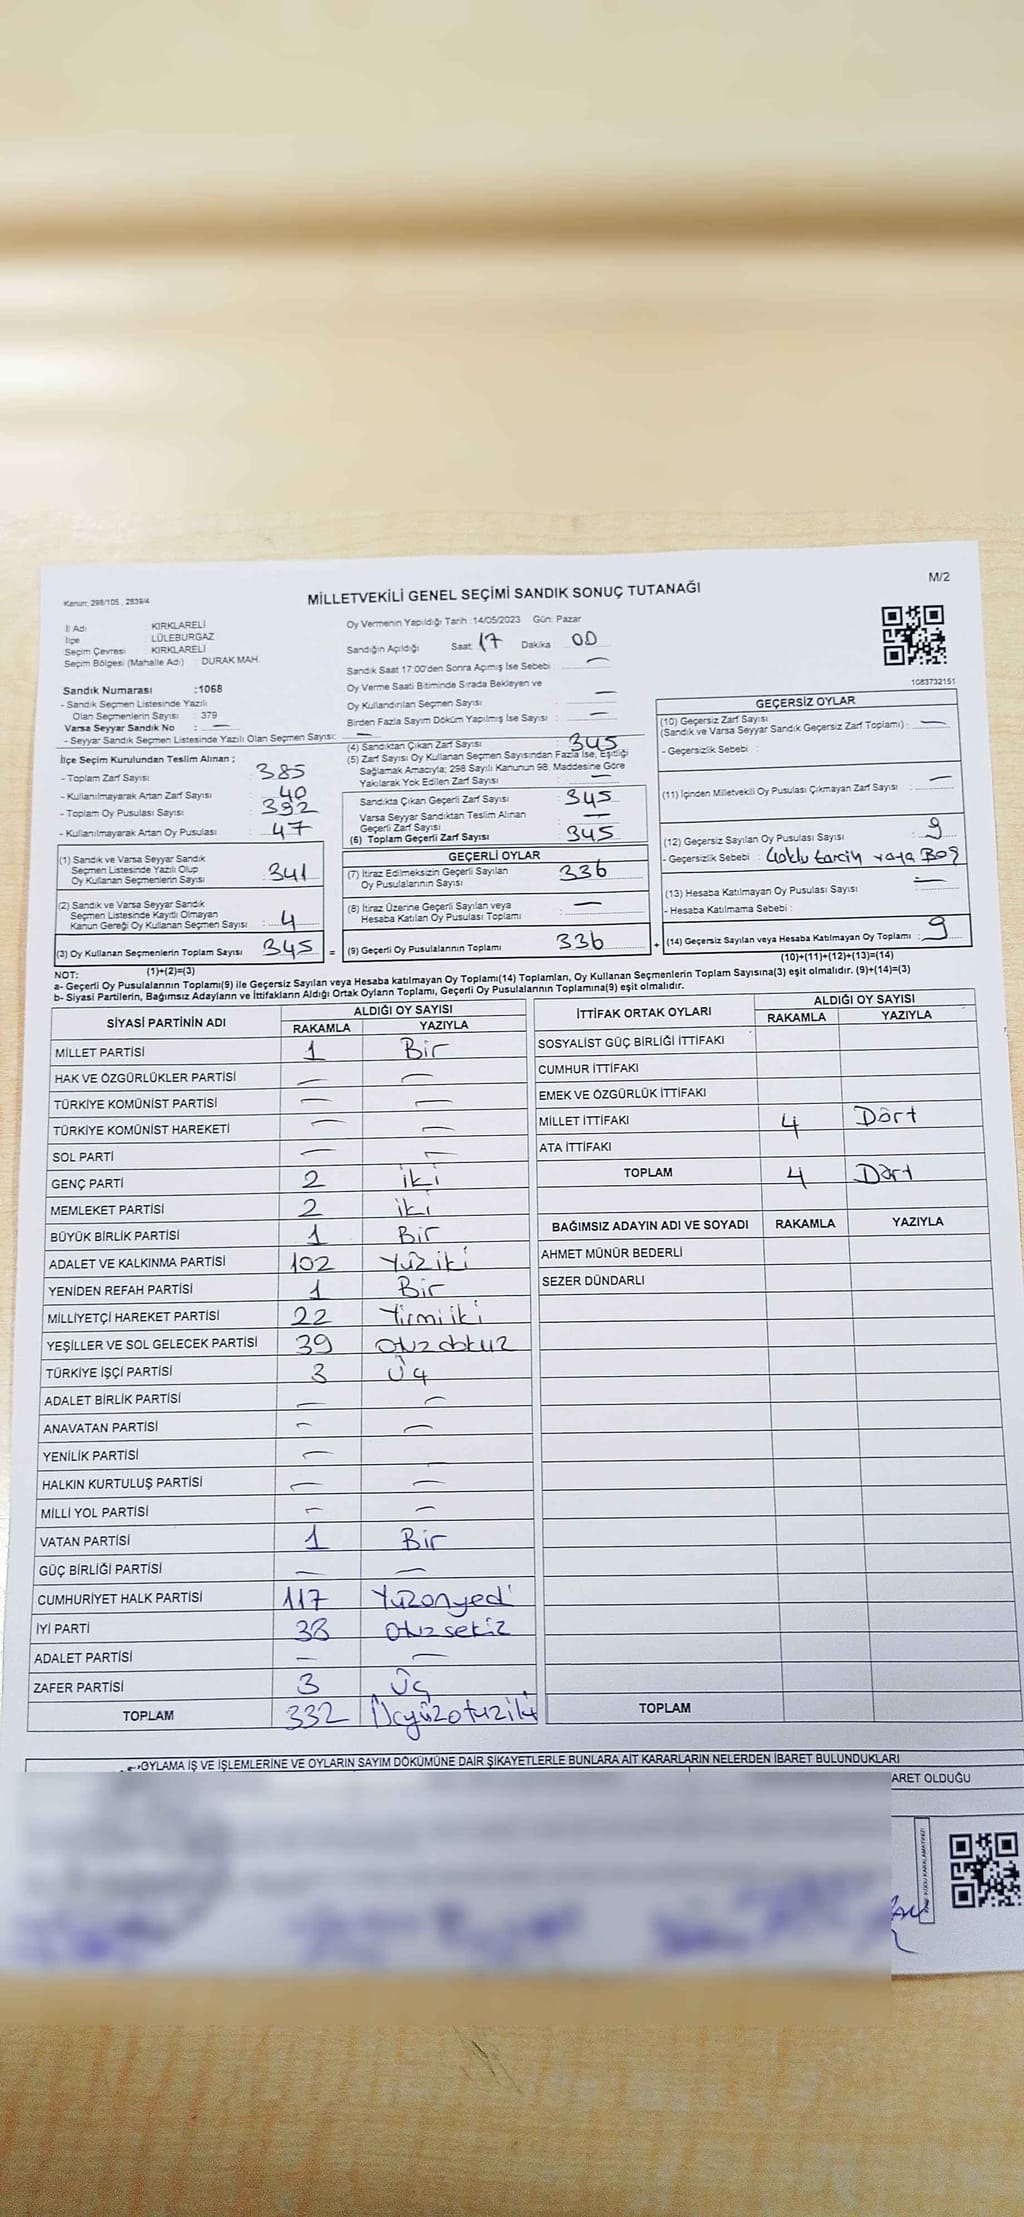 M/2
Kanun: 298/105 , 2839/4
MİLLETVEKİLİ GENEL SEÇİMİ SANDIK SONUÇ TUTANAĞI
İl Adı : KIRKLARELİ
İlçe : LÜLEBURGAZ
Seçim Çevresi : KIRKLARELİ
Seçim Bölgesi (Mahalle Adı) : DURAK MAH.
Sandık Numarası :1068
- Sandık Seçmen Listesinde Yazılı
Olan Seçmenlerin Sayısı : 379
Varsa Seyyar Sandık No : —
- Seyyar Sandık Seçmen Listesinde Yazılı Olan Seçmen Sayısı: —
İlçe Seçim Kurulundan Teslim Alınan ;
- Toplam Zarf Sayısı : 385
- Kullanılmayarak Artan Zarf Sayısı : 40
- Toplam Oy Pusulası Sayısı : 392
- Kullanılmayarak Artan Oy Pusulası : 47
(1) Sandık ve Varsa Seyyar Sandık
Seçmen Listesinde Yazılı Olup
Oy Kullanan Seçmenlerin Sayısı : 341
(2) Sandık ve Varsa Seyyar Sandık
Seçmen Listesinde Kayıtlı Olmayan
Kanun Gereği Oy Kullanan Seçmen Sayısı : 4
(3) Oy Kullanan Seçmenlerin Toplam Sayısı : 345 =
Oy Vermenin Yapıldığı Tarih :14/05/2023 Gün: Pazar
Sandığın Açıldığı Saat: 17 Dakika : 00
Sandık Saat 17:00'den Sonra Açımış İse Sebebi : —
Oy Verme Saati Bitiminde Sırada Bekleyen ve
Oy Kullandırılan Seçmen Sayısı : —
Birden Fazla Sayım Döküm Yapılmış İse Sayısı : —
(4) Sandıktan Çıkan Zarf Sayısı : 345
(5) Zarf Sayısı Oy Kullanan Seçmen Sayısından Fazla İse, Eşitliği
Sağlamak Amacıyla; 298 Sayılı Kanunun 98. Maddesine Göre
Yakılarak Yok Edilen Zarf Sayısı : —
Sandıkta Çıkan Geçerli Zarf Sayısı : 345
Varsa Seyyar Sandıktan Teslim Alınan
Geçerli Zarf Sayısı : —
(6) Toplam Geçerli Zarf Sayısı : 345
GEÇERLİ OYLAR
(7) İtiraz Edilmeksizin Geçerli Sayılan
Oy Pusulalarının Sayısı : 336
(8) İtiraz Üzerine Geçerli Sayılan veya
Hesaba Katılan Oy Pusulası Toplamı : —
(9) Geçerli Oy Pusulalarının Toplamı : 336 +
1083732151
GEÇERSİZ OYLAR
(10) Geçersiz Zarf Sayısı
(Sandık ve Varsa Seyyar Sandık Geçersiz Zarf Toplamı) : —
- Geçersizlik Sebebi :
(11) İçinden Milletvekili Oy Pusulası Çıkmayan Zarf Sayısı : —
(12) Geçersiz Sayılan Oy Pusulası Sayısı : 9
- Geçersizlik Sebebi : Çoklu tercih veya Boş
(13) Hesaba Katılmayan Oy Pusulası Sayısı : —
- Hesaba Katılmama Sebebi :
(14) Geçersiz Sayılan veya Hesaba Katılmayan Oy Toplamı : 9
(10)+(11)+(12)+(13)=(14)
NOT: (1)+(2)=(3)
a- Geçerli Oy Pusulalarının Toplamı(9) ile Geçersiz Sayılan veya Hesaba katılmayan Oy Toplamı(14) Toplamları, Oy Kullanan Seçmenlerin Toplam Sayısına(3) eşit olmalıdır. (9)+(14)=(3)
b- Siyasi Partilerin, Bağımsız Adayların ve İttifakların Aldığı Ortak Oyların Toplamı, Geçerli Oy Pusulalarının Toplamına(9) eşit olmalıdır.
SİYASİ PARTİNİN ADI ALDIĞI OY SAYISI
RAKAMLA YAZIYLA
MİLLET PARTİSİ 1 Bir
HAK VE ÖZGÜRLÜKLER PARTİSİ — —
TÜRKİYE KOMÜNİST PARTİSİ — —
TÜRKİYE KOMÜNİST HAREKETİ — —
SOL PARTİ — —
GENÇ PARTİ 2 iki
MEMLEKET PARTİSİ 2 iki
BÜYÜK BİRLİK PARTİSİ 1 Bir
ADALET VE KALKINMA PARTİSİ 102 Yüziki
YENİDEN REFAH PARTİSİ 1 Bir
MİLLİYETÇİ HAREKET PARTİSİ 22 Yirmiiki
YEŞİLLER VE SOL GELECEK PARTİSİ 39 Otuzdokuz
TÜRKİYE İŞÇİ PARTİSİ 3 Üç
ADALET BİRLİK PARTİSİ — —
ANAVATAN PARTİSİ — —
YENİLİK PARTİSİ — —
HALKIN KURTULUŞ PARTİSİ — —
MİLLİ YOL PARTİSİ — —
VATAN PARTİSİ 1 Bir
GÜÇ BİRLİĞİ PARTİSİ — —
CUMHURİYET HALK PARTİSİ 117 Yüzonyedi
İYİ PARTİ 38 Otuzsekiz
ADALET PARTİSİ — —
ZAFER PARTİSİ 3 Üç
TOPLAM 332 Üçyüzotuziki
İTTİFAK ORTAK OYLARI ALDIĞI OY SAYISI
RAKAMLA YAZIYLA
SOSYALİST GÜÇ BİRLİĞİ İTTİFAKI
CUMHUR İTTİFAKI
EMEK VE ÖZGÜRLÜK İTTİFAKI
MİLLET İTTİFAKI 4 Dört
ATA İTTİFAKI
TOPLAM 4 Dört
BAĞIMSIZ ADAYIN ADI VE SOYADI RAKAMLA YAZIYLA
AHMET MÜNÜR BEDERLİ
SEZER DÜNDARLI
TOPLAM
OYLAMA İŞ VE İŞLEMLERİNE VE OYLARIN SAYIM DÖKÜMÜNE DAİR ŞİKAYETLERLE BUNLARA AİT KARARLARIN NELERDEN İBARET BULUNDUKLARI
ARET OLDUĞU